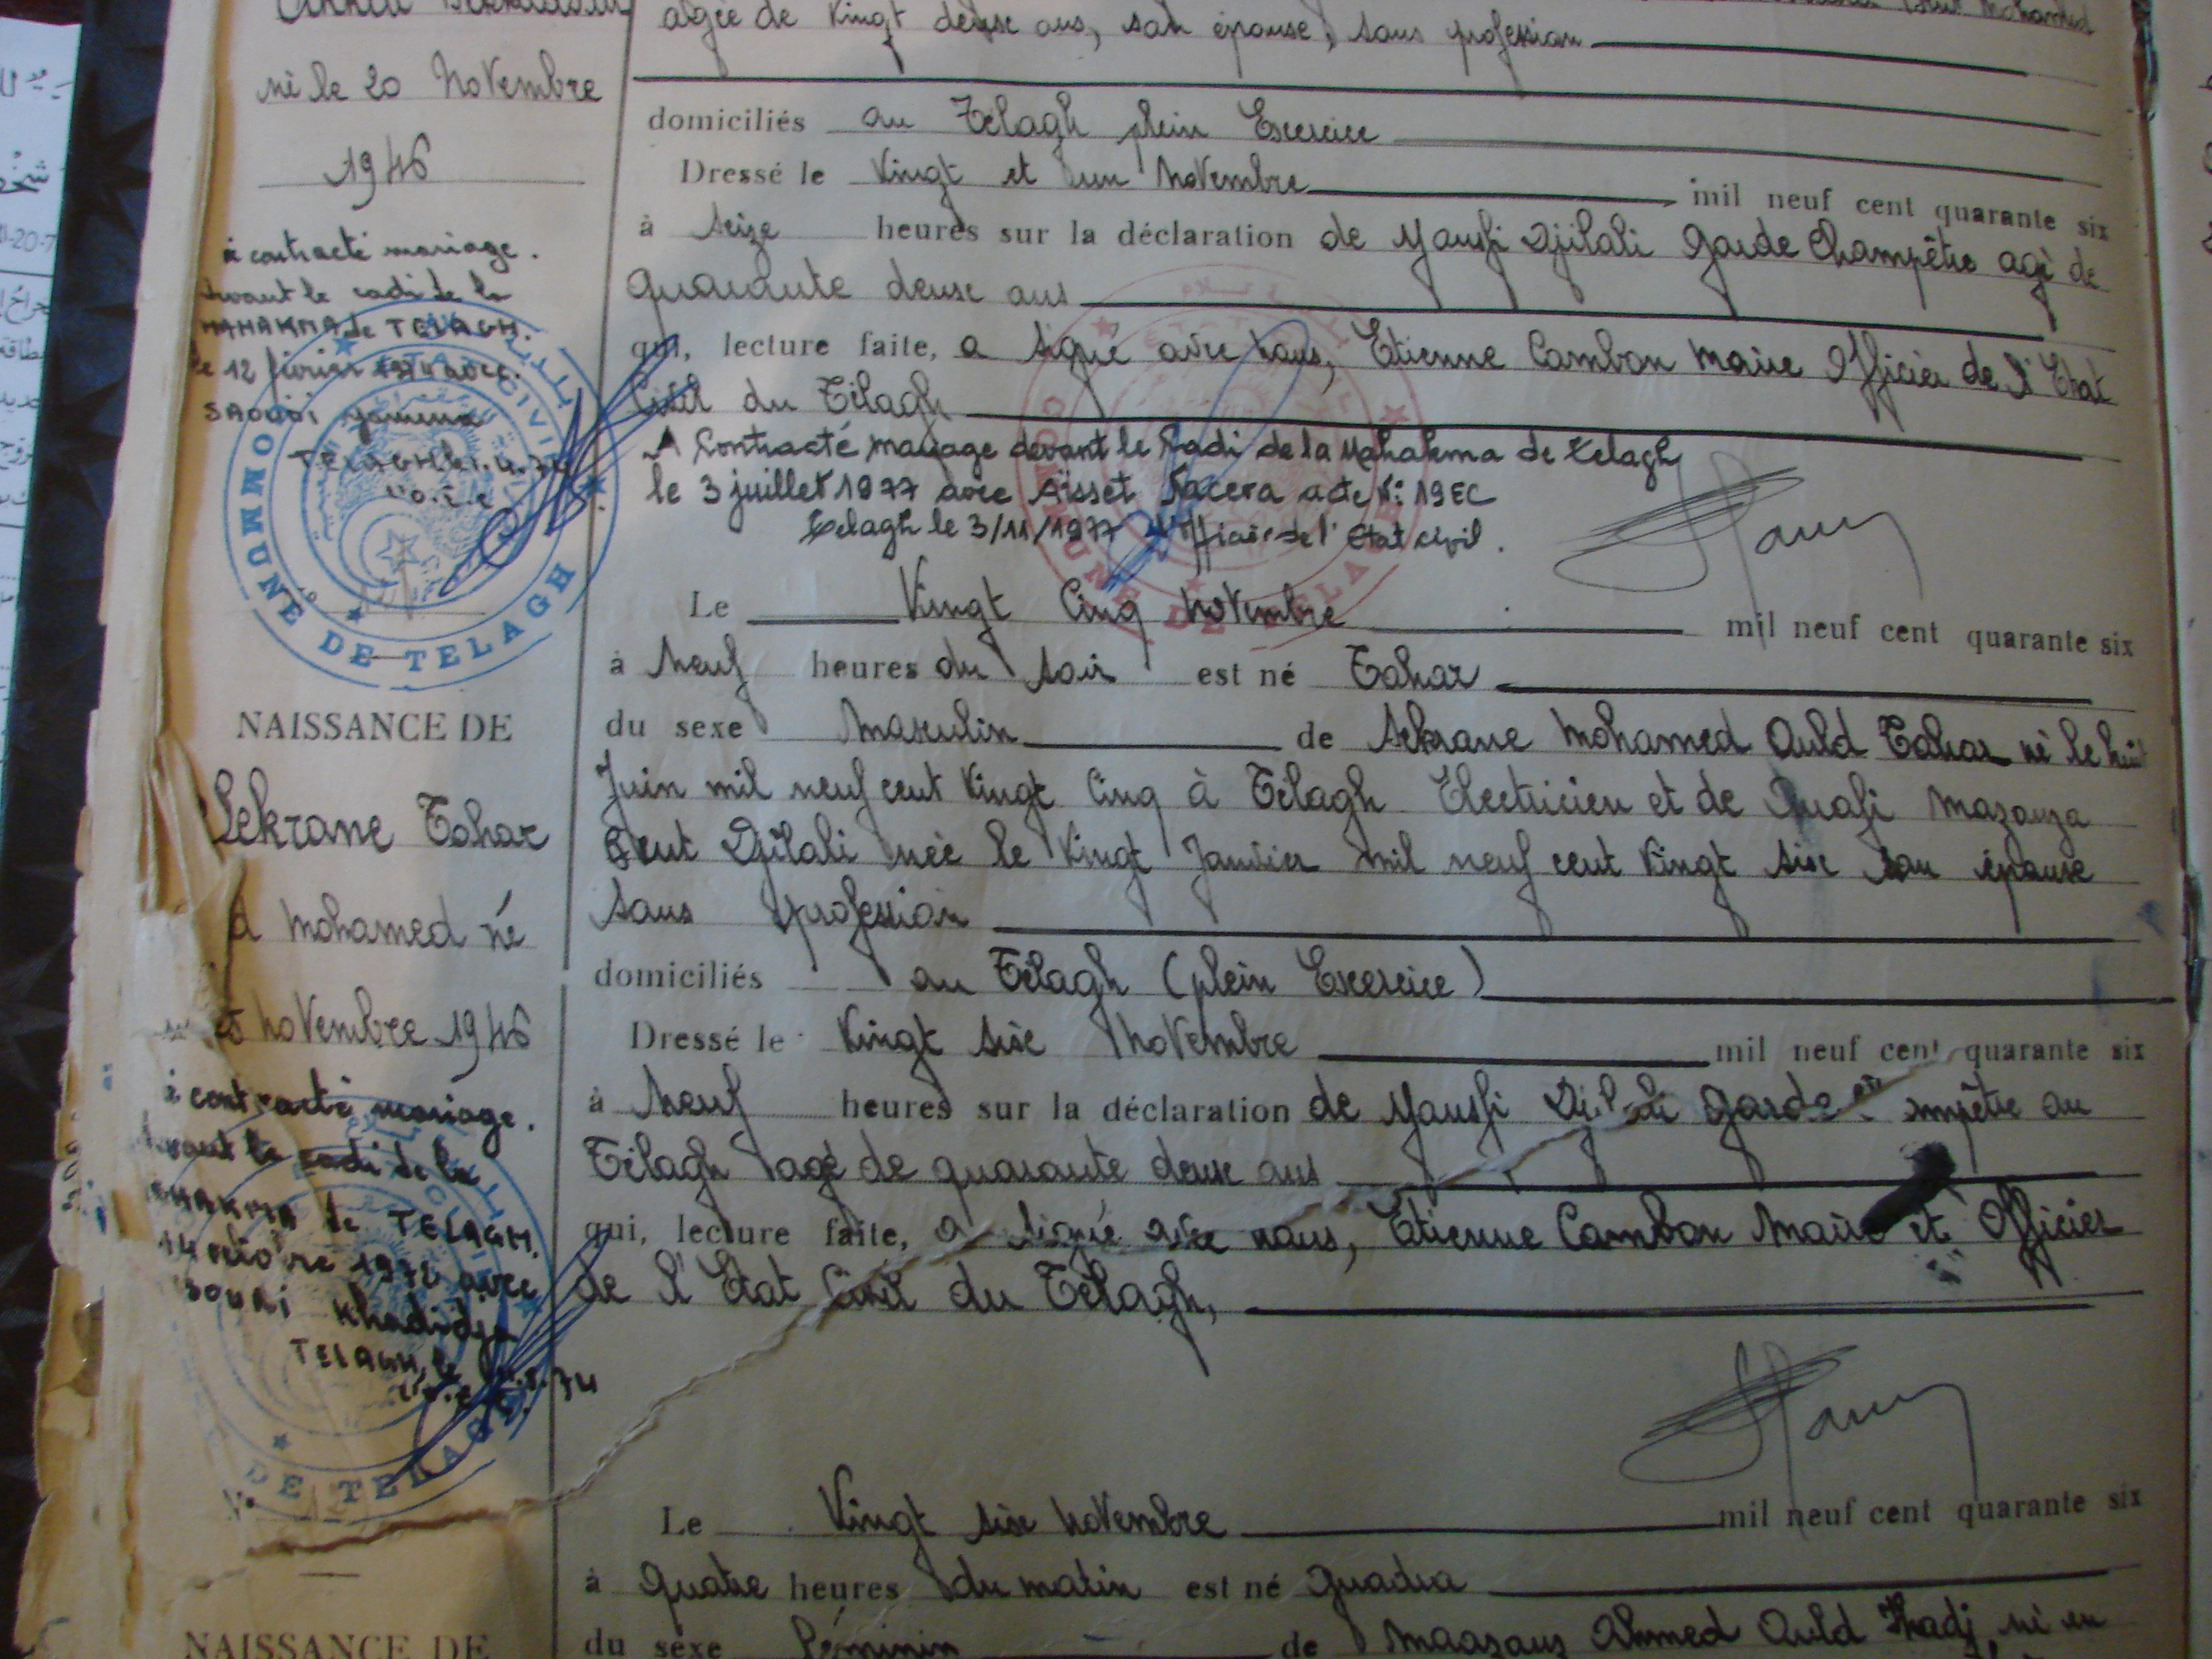 né le 20 Novembre
1946
a contracté mariage.
devant le cadi de la
MAHAKMA de TELAGH.
le 12 février avec.
SAOUDI Yamina
TELAGH le
l'o.e.c
COMMUNE DE TELAGH
ETAT CIVIL
agée de Vingt deux ans, son épouse, sans profession
domiciliés au Télagh plein Exercice
Dressé le Vingt et un Novembre mil neuf cent quarante six
à seize heures sur la déclaration de Yousfi Djilali Garde Champêtre agé de
quarante deux ans
qui, lecture faite, a signé avec nous, Etienne Cambon Maire Officier de l'Etat
Civil du Télagh
A Contracté mariage devant le Cadi de la Mahakma de Telagh
le 3 juillet 1977 avec Aïsset Nacera acte N: 19EC
Telagh le 3/11/1977 Officier de l'Etat civil.
Le Vingt Cinq Novembre mil neuf cent quarante six
à Neuf heures du soir est né Tahar
du sexe Masculin de Sekrane Mohamed Ould Tahar né le huit
Juin mil neuf cent Vingt Cinq à Télagh Electricien et de Ouafi Mazouza
Bent Djilali née le Vingt Janvier mil neuf cent Vingt six son épouse
sans profession
domiciliés au Télagh (plein Exercice)
Dressé le Vingt six Novembre mil neuf cent quarante six
à Neuf heures sur la déclaration de Yousfi Djilali Garde Champêtre au
Télagh agé de quarante deux ans
qui, lecture faite, a signé avec nous, Etienne Cambon Maire et Officier
de l'Etat Civil du Télagh,
NAISSANCE DE
Sekrane Tahar
d Mohamed né
Novembre 1946
a contracté mariage.
devant le cadi de la
MAHAKMA de TELAGH.
14 avec
Khadidja
TELAGH, le
DE TELAGH
Le Vingt six Novembre mil neuf cent quarante six
à Quatre heures du matin est né Ouadra
du sexe Féminin de Maazouz Ahmed Ould Hadj né en
NAISSANCE DE